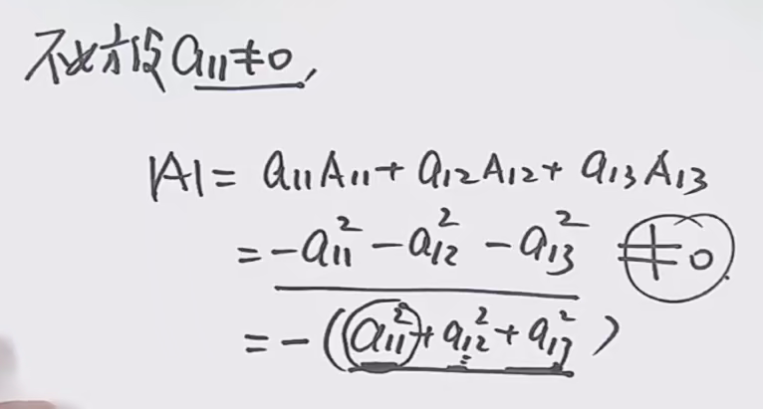 不妨设a₁₁≠0,
|A|= a₁₁A₁₁+a₁₂A₁₂+a₁₃A₁₃
=-a₁₁²-a₁₂²-a₁₃² ≠0
=-(a₁₁²+a₁₂²+a₁₃²)